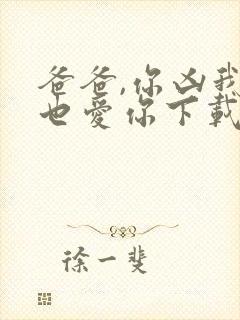 爸爸,你凶我
也爱你下載
徐一斐